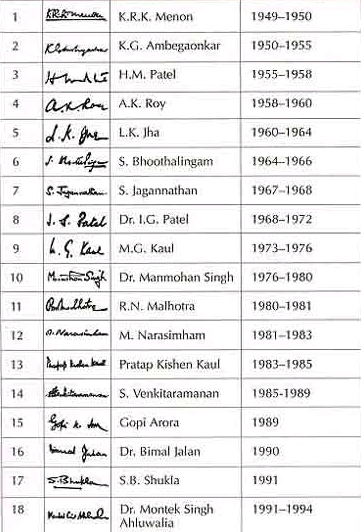 1 K.R.K. Menon K.R.K. Menon 1949–1950
2 K.G. Ambegaonkar K.G. Ambegaonkar 1950–1955
3 H.M. Patel 1955–1958
4 A.K. Roy A.K. Roy 1958–1960
5 L.K. Jha L.K. Jha 1960–1964
6 S. Bhoothalingam 1964–1966
7 S. Jagannathan S. Jagannathan 1967–1968
8 I. G. Patel Dr. I.G. Patel 1968–1972
9 M. G. Kaul M.G. Kaul 1973–1976
10 Manmohan Singh Dr. Manmohan Singh 1976–1980
11 R.N. Malhotra 1980–1981
12 M. Narasimham M. Narasimham 1981–1983
13 Pratap Kishen Kaul Pratap Kishen Kaul 1983–1985
14 S. Venkitaramanan 1985-1989
15 Gopi Gopi Arora 1989
16 Bimal Jalan Dr. Bimal Jalan 1990
17 S.B. Shukla S.B. Shukla 1991
18 Dr. Montek Singh 1991–1994
Ahluwalia